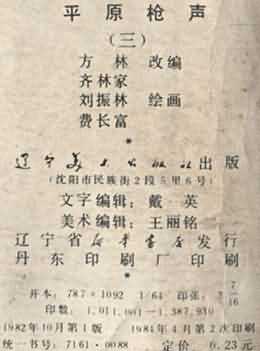 平原枪声
(三)
方林 改编
齐林家
刘振林 绘画
费长富
*
辽宁美术出版社出版
(沈阳市民族街2段5里6号)
文字编辑:戴·英
美术编辑:王丽铭
辽宁省新华书店发行
丹东印刷厂印刷
*
开本:787×1092 1/64 印张:3 7/16
印数:1,011,001—1,387,930
1982年10月第1版 1984年4月第2次印刷
统一书号:7161·0088 定价 0.23元